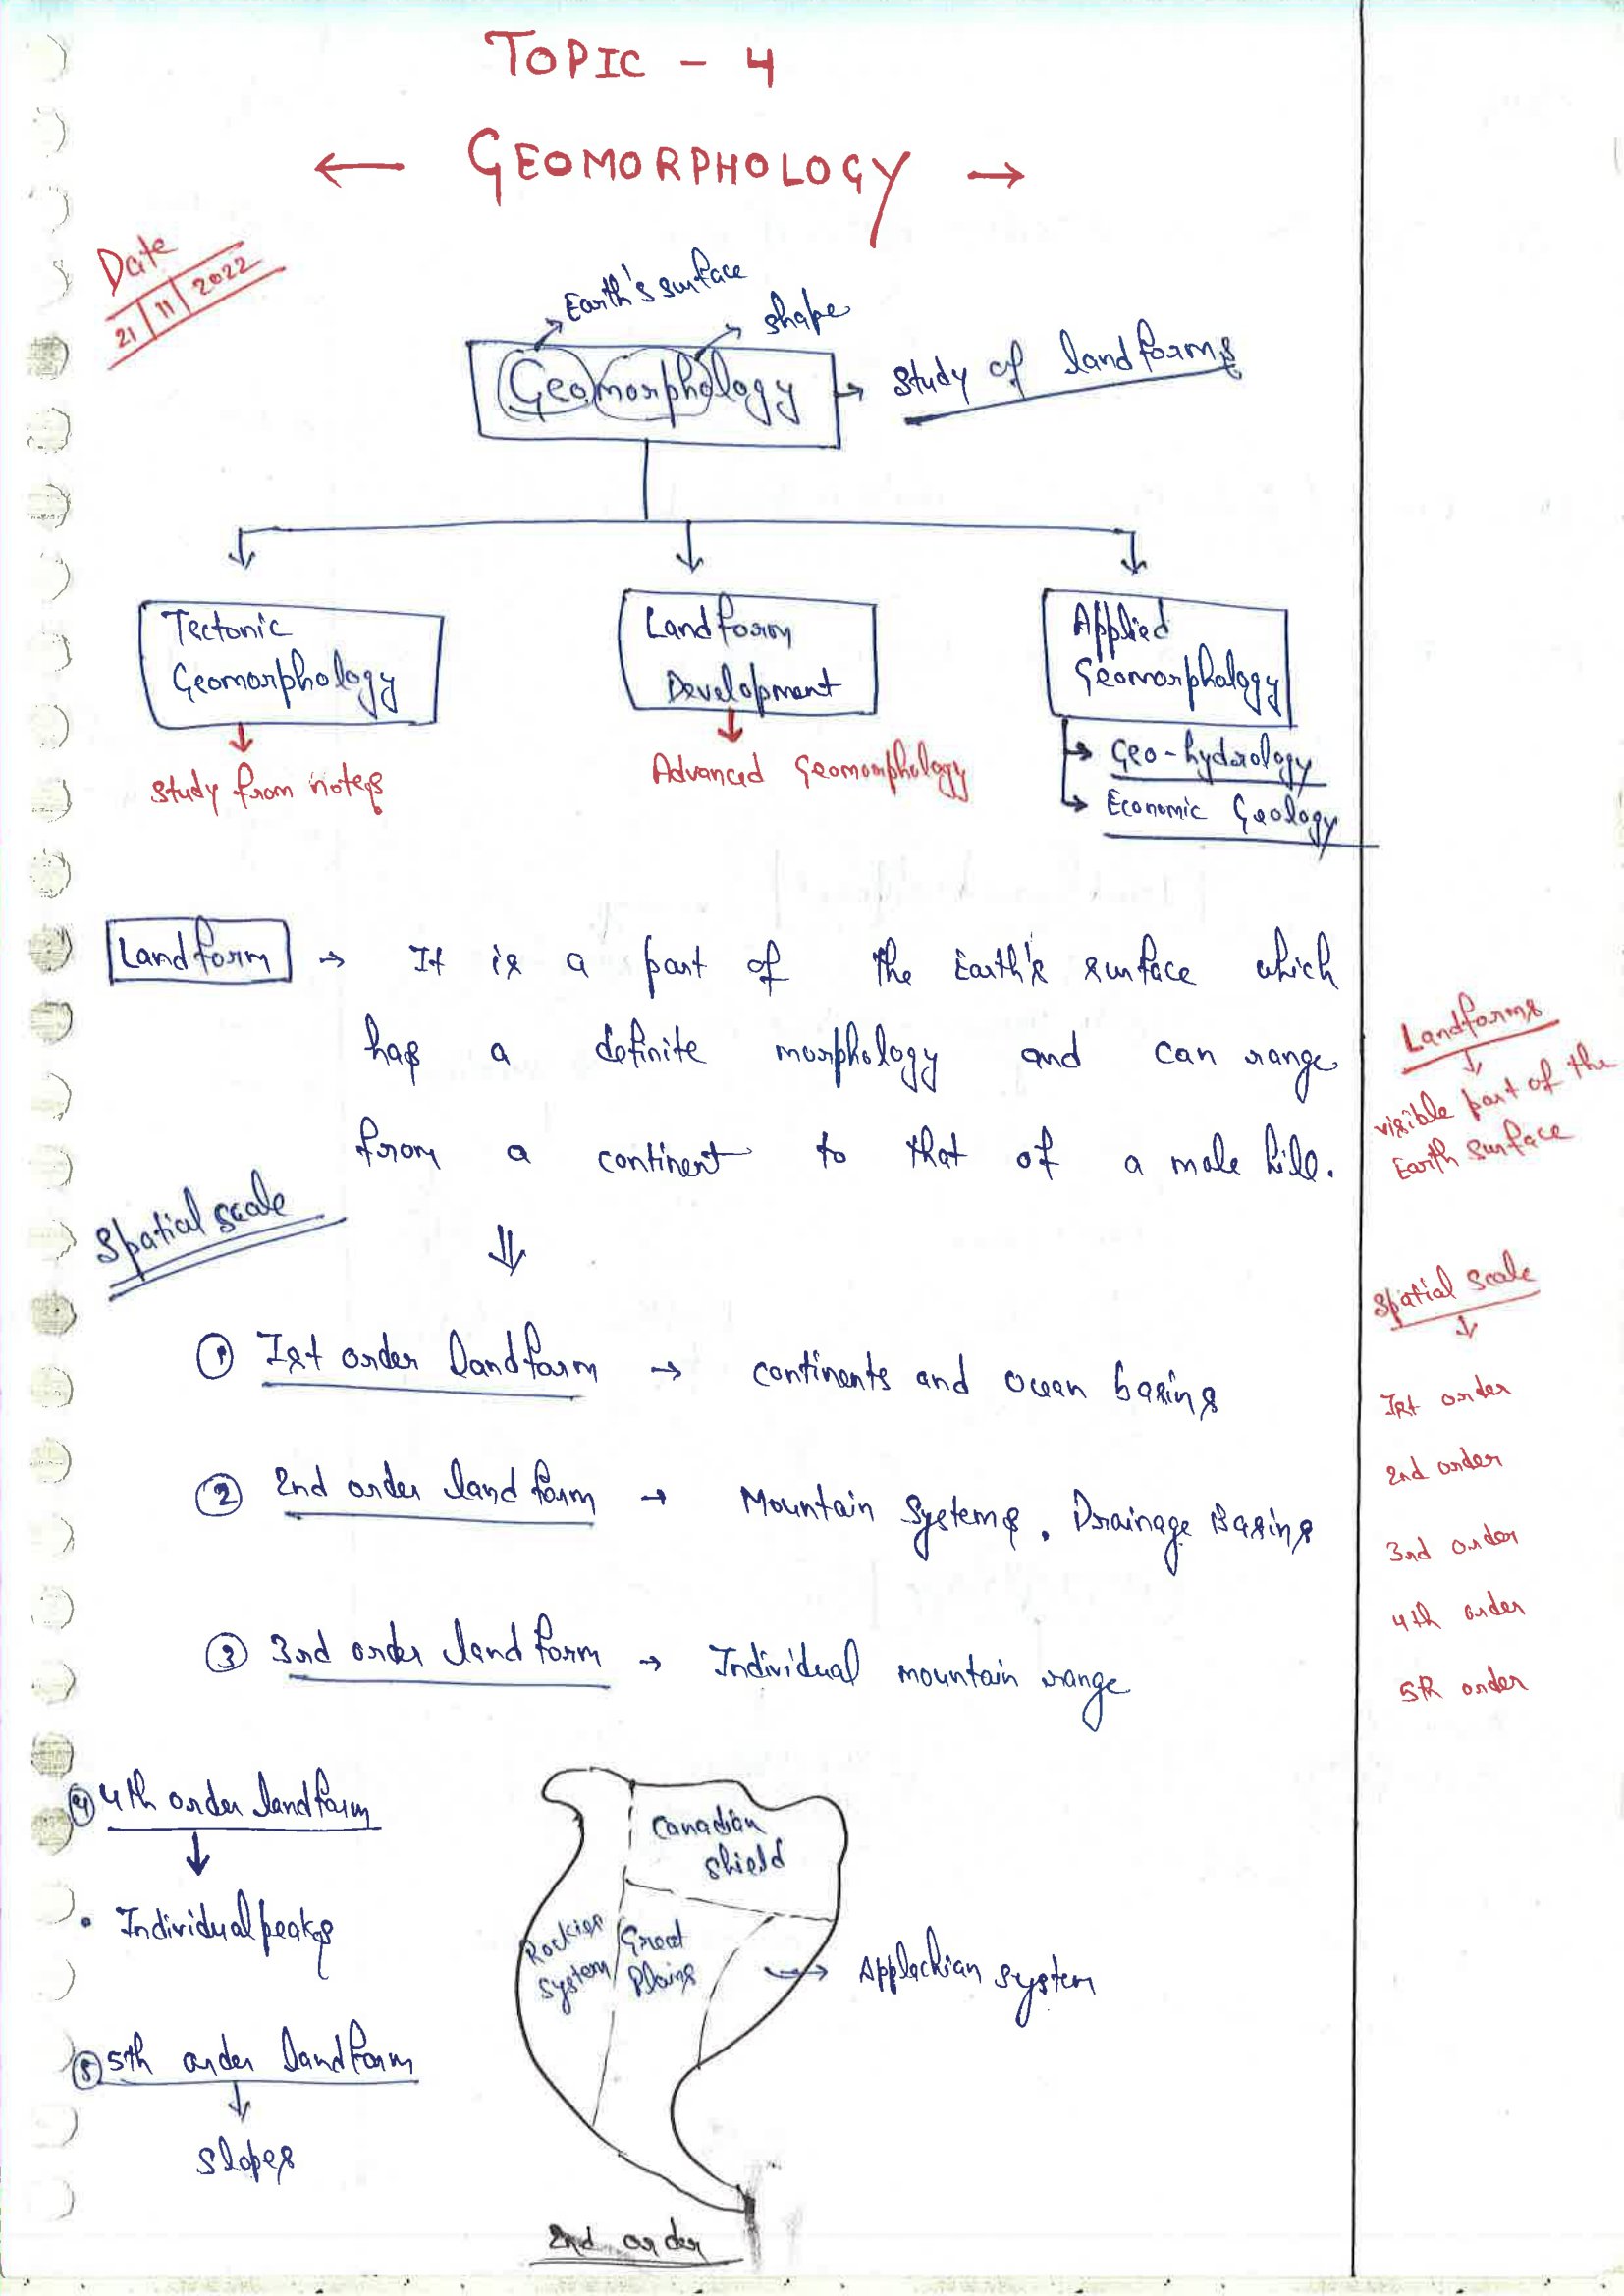 TOPIC - 4
← GEOMORPHOLOGY →
Date
21 | 11 | 2022
Earth's surface
shape
Geomorphology → study of landforms
Tectonic
Geomorphology
Landform
Development
Applied
Geomorphology
study from notes
Advanced Geomorphology
→ Geo-hydrology
→ Economic Geology
Landform → It is a part of the Earth's surface which
has a definite morphology and can range
from a continent to that of a mole hill.
Landforms
visible part of the
Earth surface
Spatial scale
① Ist order landform → continents and ocean basins
② 2nd order landform → Mountain Systems, Drainage Basins
③ 3rd order landform → Individual mountain range
Spatial scale
Ist order
2nd order
3rd order
4th order
5th order
④ 4th order landform
• Individual peaks
⑤ 5th order landform
slopes
Canadian
shield
Rockies
system
Great
Plains
→ Applachian system
2nd order